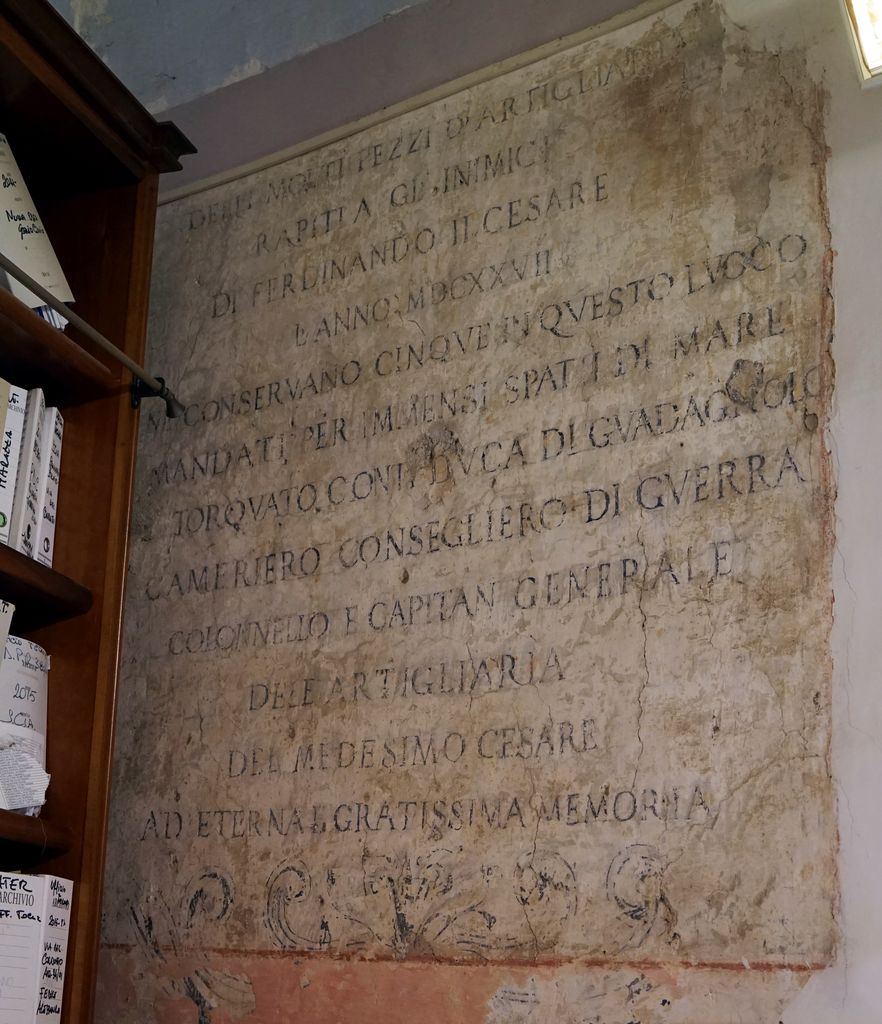 DELLI MOLTI PEZZI D'ARTIGLIARIA
RAPITI A GL'INIMICI
DI FERDINANDO II. CESARE
L'ANNO MDCXXVII
SI CONSERVANO CINQVE IN QVESTO LVOCO
MANDATI PER IMMENSI SPATII DI MARE
TORQVATO CONTI DVCA DI GVADAGNOLO
CAMERIERO CONSEGLIERO DI GVERRA
COLONNELLO E CAPITAN GENERALE
DELE ARTIGLIARIA
DEL MEDESIMO CESARE
AD ETERNA E GRATISSIMA MEMORIA
2015
SCIA
ARCHIVIO